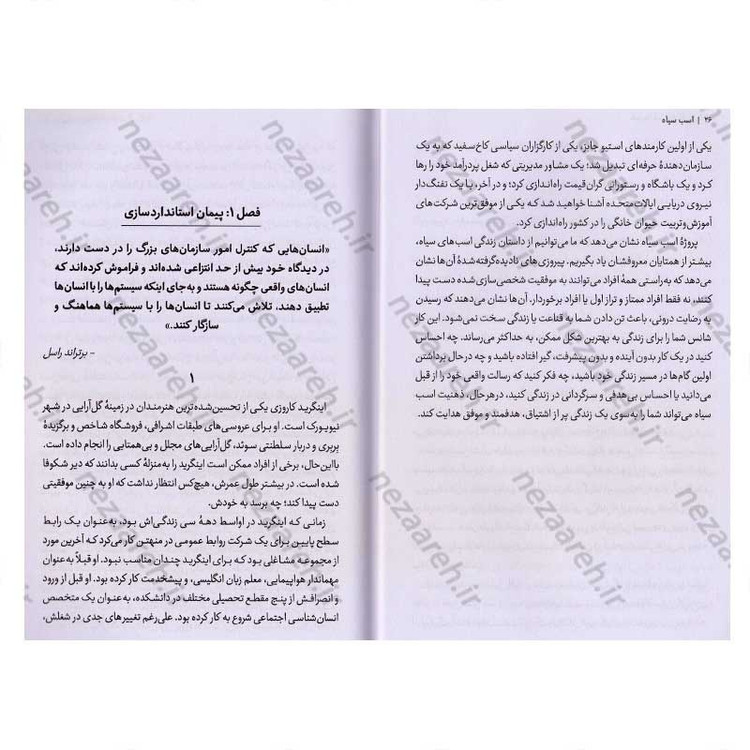 ۲۶ | اسب سیاه
یکی از اولین کارمندهای استیو جابز، یکی از کارگزاران سیاسی کاخ‌سفید که به یک
سازمان‌دهندهٔ حرفه‌ای تبدیل شد؛ یک مشاور مدیریتی که شغل پردرآمد خود را رها
کرد و یک باشگاه و رستورانی گران‌قیمت راه‌اندازی کرد؛ و در آخر، با یک تفنگ‌دار
نیروی دریایی ایالات‌متحده آشنا خواهید شد که یکی از موفق‌ترین شرکت‌های
آموزش‌وتربیت حیوان خانگی را در کشور راه‌اندازی کرد.
پروژهٔ اسب سیاه نشان می‌دهد که ما می‌توانیم از داستان زندگی اسب‌های سیاه،
بیشتر از همتایان معروفشان یاد بگیریم. پیروزی‌های نادیده‌گرفته‌شدهٔ آن‌ها نشان
می‌دهد که به‌راستی همهٔ افراد می‌توانند به موفقیت شخصی‌سازی شده دست پیدا
کنند، نه فقط افراد ممتاز و تراز اول یا افراد برخوردار. آن‌ها نشان می‌دهند که رسیدن
به رضایت درونی، باعث تن دادن شما به قناعت یا زندگی سخت نمی‌شود. این کار
شانس شما را برای زندگی به بهترین شکل ممکن، به حداکثر می‌رساند. چه احساس
کنید در یک کار بدون آینده و بدون پیشرفت، گیر افتاده باشید و چه درحال برداشتن
اولین گام‌ها در مسیر زندگی خود باشید، چه فکر کنید که رسالت واقعی خود را از قبل
می‌دانید یا احساس بی‌هدفی و سرگردانی در زندگی کنید، درهرحال، ذهنیت اسب
سیاه می‌تواند شما را به‌سوی یک زندگی پر از اشتیاق، هدفمند و موفق هدایت کند.
فصل ۱: پیمان استانداردسازی
«انسان‌هایی که کنترل امور سازمان‌های بزرگ را در دست دارند،
در دیدگاه خود بیش از حد انتزاعی شده‌اند و فراموش کرده‌اند که
انسان‌های واقعی چگونه هستند و به‌جای اینکه سیستم‌ها را با انسان‌ها
تطبیق دهند، تلاش می‌کنند تا انسان‌ها را با سیستم‌ها هماهنگ و
سازگار کنند.»
- برتراند راسل
۱
اینگرید کاروزی یکی از تحسین‌شده‌ترین هنرمندان در زمینهٔ گل‌آرایی در شهر
نیویورک است. او برای عروسی‌های طبقات اشرافی، فروشگاه شاخص و برگزیدهٔ
بربری و دربار سلطنتی سوئد، گل‌آرایی‌های مجلل و بی‌همتایی را انجام داده است.
بااین‌حال، برخی از افراد ممکن است اینگرید را به‌منزلهٔ کسی بدانند که دیر شکوفا
شده است. در بیشتر طول عمرش، هیچ‌کس انتظار نداشت که او به چنین موفقیتی
دست پیدا کند؛ چه برسد به خودش.
زمانی که اینگرید در اواسط دههٔ سی زندگی‌اش بود، به‌عنوان یک رابط
سطح پایین برای یک شرکت روابط عمومی در منهتن کار می‌کرد که آخرین مورد از
مجموعه مشاغلی بود که برای اینگرید چندان مناسب نبود. او قبلاً به‌عنوان
مهماندار هواپیمایی، معلم زبان انگلیسی، و پیشخدمت کار کرده بود. او قبل از ورود
و انصرافش از پنج مقطع تحصیلی مختلف در دانشکده، به‌عنوان یک متخصص
انسان‌شناسی اجتماعی شروع به کار کرده بود. علی‌رغم تغییرهای جدی در شغلش،
nezaareh.ir
nezaareh.ir
nezaareh.ir
nezaareh.ir
nezaareh.ir
nezaareh.ir
nezaareh.ir
nezaareh.ir
nezaareh.ir